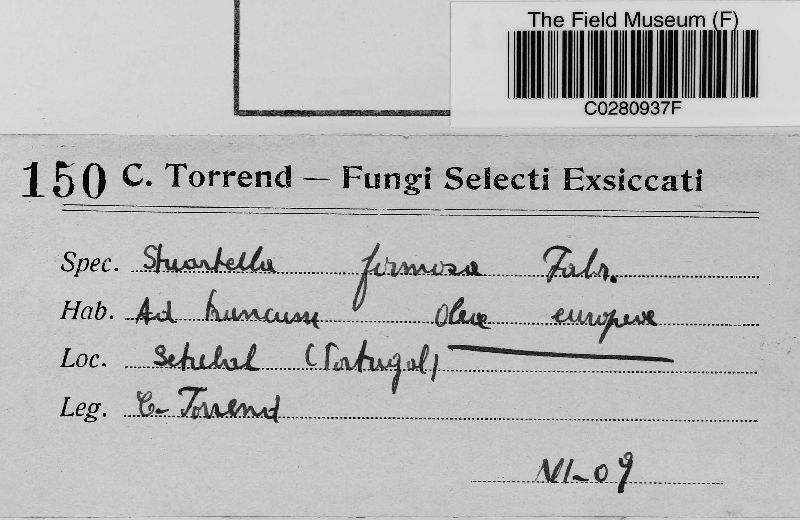 The Field Museum (F)
C0280937F
150 C. Torrend — Fungi Selecti Exsiccati
Spec. Stuartella formosa Fabr.
Hab. Ad truncum Oleae europeae
Loc. Setubal (Portugal)
Leg. C. Torrend
VI-09